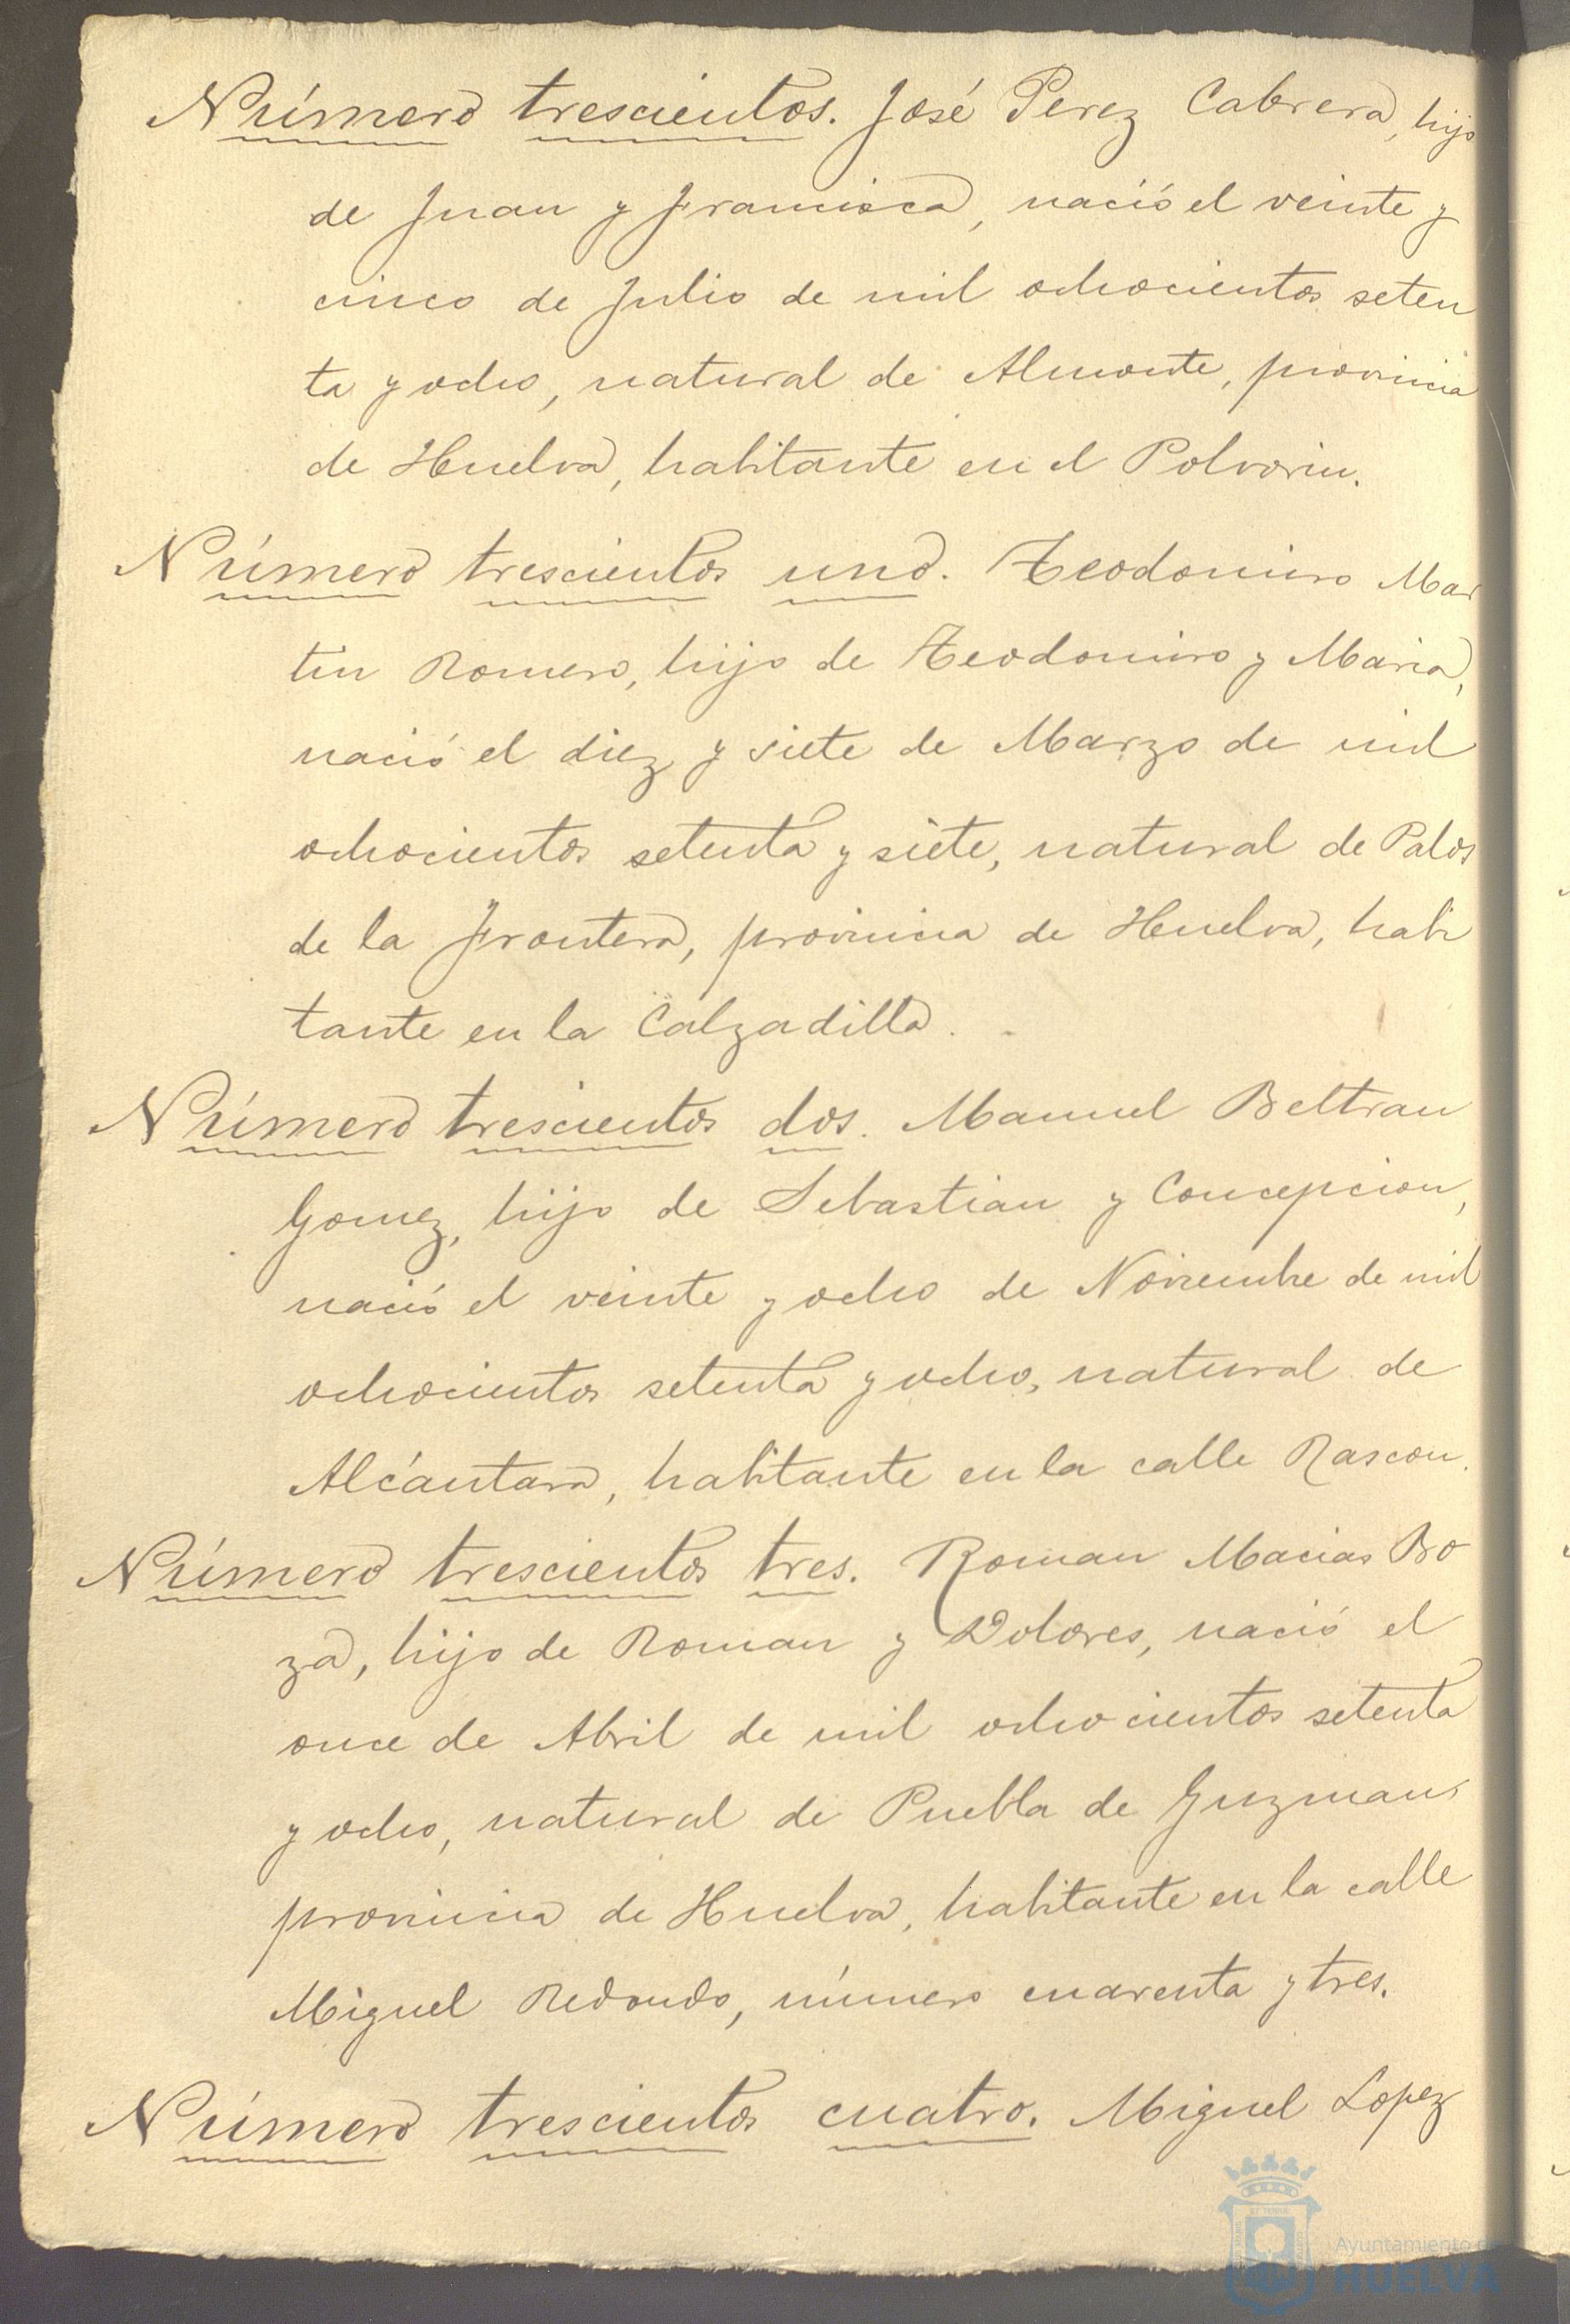 Número trescientos. José Perez Cabrera, hijo
de Juan y Francisca, nació el veinte y
cinco de Julio de mil ochocientos seten
ta y ocho, natural de Almonte, provincia
de Huelva, habitante en el Polvorin.
Número trescientos uno. Teodomiro Mar
tin Romero, hijo de Teodomiro y Maria,
nació el diez y siete de Marzo de mil
ochocientos setenta y siete, natural de Palos
de la Frontera, provincia de Huelva, habi
tante en la Calzadilla.
Número trescientos dos. Manuel Beltran
Gomez, hijo de Sebastian y Concepcion,
nació el veinte y ocho de Noviembre de mil
ochocientos setenta y ocho, natural de
Alcántara, habitante en la calle Rascon.
Número trescientos tres. Roman Macias Bo
za, hijo de Roman y Dolores, nació el
once de Abril de mil ochocientos setenta
y ocho, natural de Puebla de Guzman,
provincia de Huelva, habitante en la calle
Miguel Redondo, número cuarenta y tres.
Número trescientos cuatro. Miguel Lopez
Ayuntamiento de
HUELVA